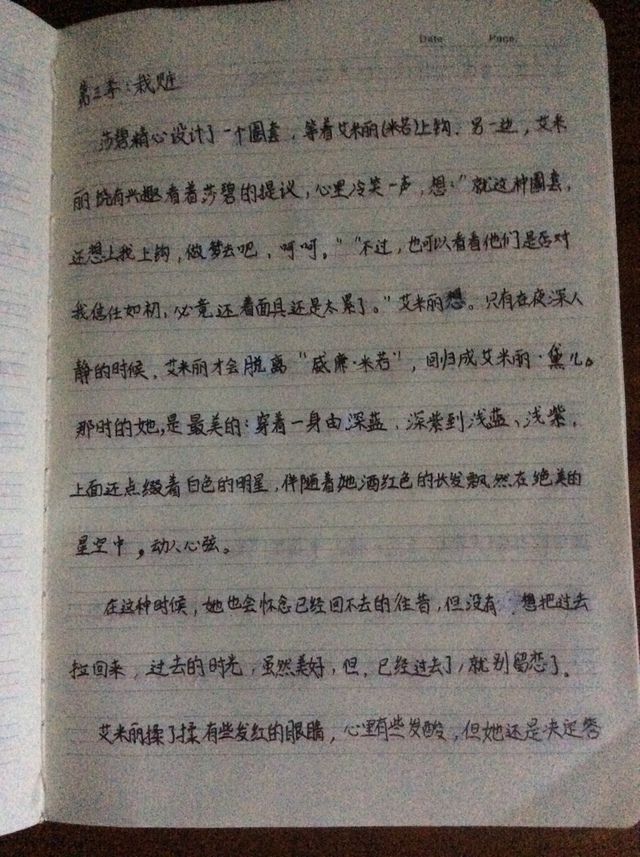 Date Page
第三季：栽赃
莎碧精心设计了一个圈套，等着艾米丽(米若)上钩、另一边，艾米
丽饶有兴趣看着莎碧的提议，心里冷笑一声，想："就这种圈套，
还想上我上钩，做梦去吧、呵呵。""不过，也可以看看他们是否对
我信任如初，必竟还着面具还是太累了。"艾米丽想。只有在夜深人
静的时候，艾米丽才会脱离"威廉·米若"，回归成艾米丽·黛儿。
那时的她，是最美的：穿着一身由深蓝、深紫到浅蓝、浅紫，
上面还点缀着白色的明星，伴随着她酒红色的长发飘然在绝美的
星空中，动人心弦。
在这种时候，她也会怀念已经回不去的往昔，但没有想把过去
拉回来，过去的时光，虽然美好，但，已经过去了，就别留恋了。
艾米丽揉了揉有些发红的眼睛，心里有些发酸，但她还是决定答